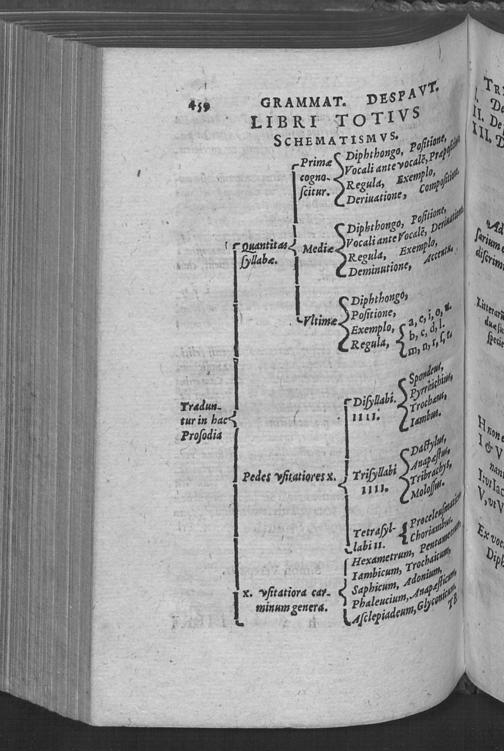 459 GRAMMAT. DESPAVT.
LIBRI TOTIVS
SCHEMATISMVS.
Primæ cogno-
scitur.
Diphthongo, Positione,
Vocali ante vocalē, Præpositione
Regula, Exemplo,
Deriuatione, Compositione.
Quantitas
syllabæ.
Mediæ
Diphthongo, Positione,
Vocali ante Vocalē, Deriuatione
Regula, Exemplo,
Deminutione, Accentu.
Vltimæ
Diphthongo,
Positione,
Exemplo,
Regula,
a, e, i, o, u.
b, c, d, l.
m, n, r, s, t.
Tradun-
tur in hac
Prosodia
Pedes vsitatiores x.
Disyllabi.
IIII.
Spondeus,
Pyrrichius,
Trochæus,
Iambus.
Trisyllabi
IIII.
Dactylus,
Anapæstus,
Tribrachys,
Molossus.
Tetrasyl-
labi II.
Proceleusmaticus
Choriambus.
x. vsitatiora car-
minum genera.
Hexametrum, Pentametrum
Iambicum, Trochaicum,
Saphicum, Adonium,
Phaleucium, Anapæsticum,
Asclepiadeum, Glyconicum.
TR
II. De
Ad
Litterar
specie
H non e
I & V
V, ut V
Ex voc
Diph